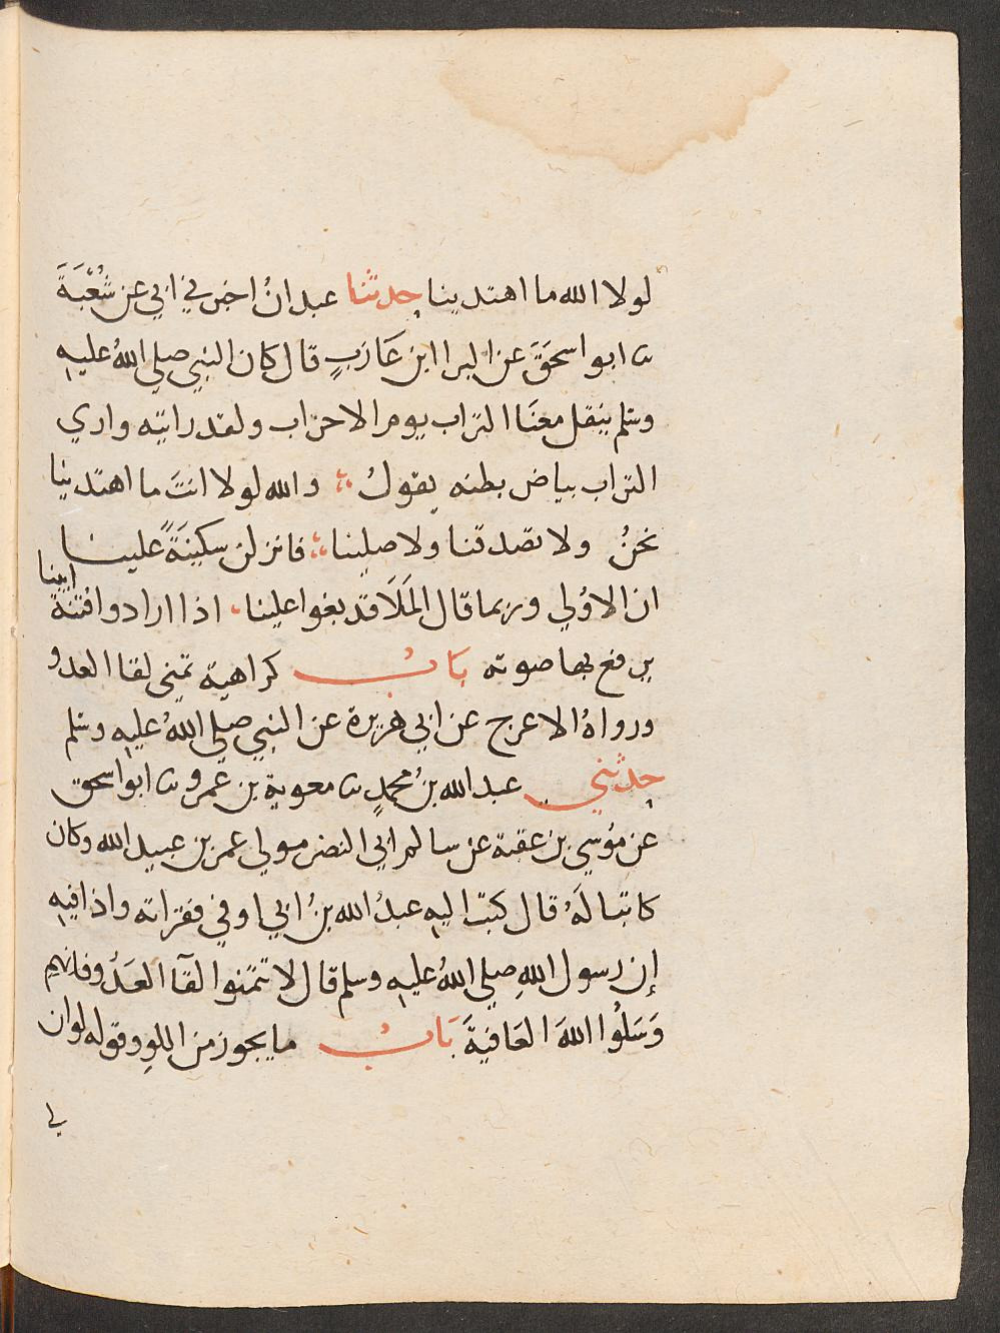 لولا الله ما اهتدينا حدثنا عبدانُ اخبرني ابي عن شُعْبَةَ
ثنا ابو اسحَقَ عن البرا ابن عَازبٍ قال كان النبي صلي اللهُ عليهِ
وسلم ينقل معنَا التراب يوم الاحزاب ولقد رايته واري
التراب بياض بطنه يقولُ والله لولا انتَ ما اهتدينا
نحنُ ولا تصدقنا ولا صلينا فانزلن سكينَةً علينا
ان الاوُلي وربما قال المَلَا قد بغوا علينا اذا ارادوا فتنة ابينا
يرفع بها صوته بَابُ كراهية تمني لقا العدو
ورواهُ الاعرج عن ابي هريرة عن النبي صلي اللهُ عليهِ وسلم
حدثني عبد الله بنُ محمدٍ ثنا معوية بن عمرو ثنا ابو اسحق
عن موُسي بن عقبة عن سالم ابي النضر مولي عمر بن عبيد الله وكان
كاتبا لَهُ قال كتبَ اليهِ عبدُ الله بنُ ابي اوفي فقراته واذا فيهِ
إن رسول اللهِ صلي اللهُ عليهِ وسلم قال لا تمَنوا لقآ العَدُو فانهم
وَسَلُوا اللهَ العَافيةَ بَابُ ما يجوز من اللوِ وقوله لو ان
لي